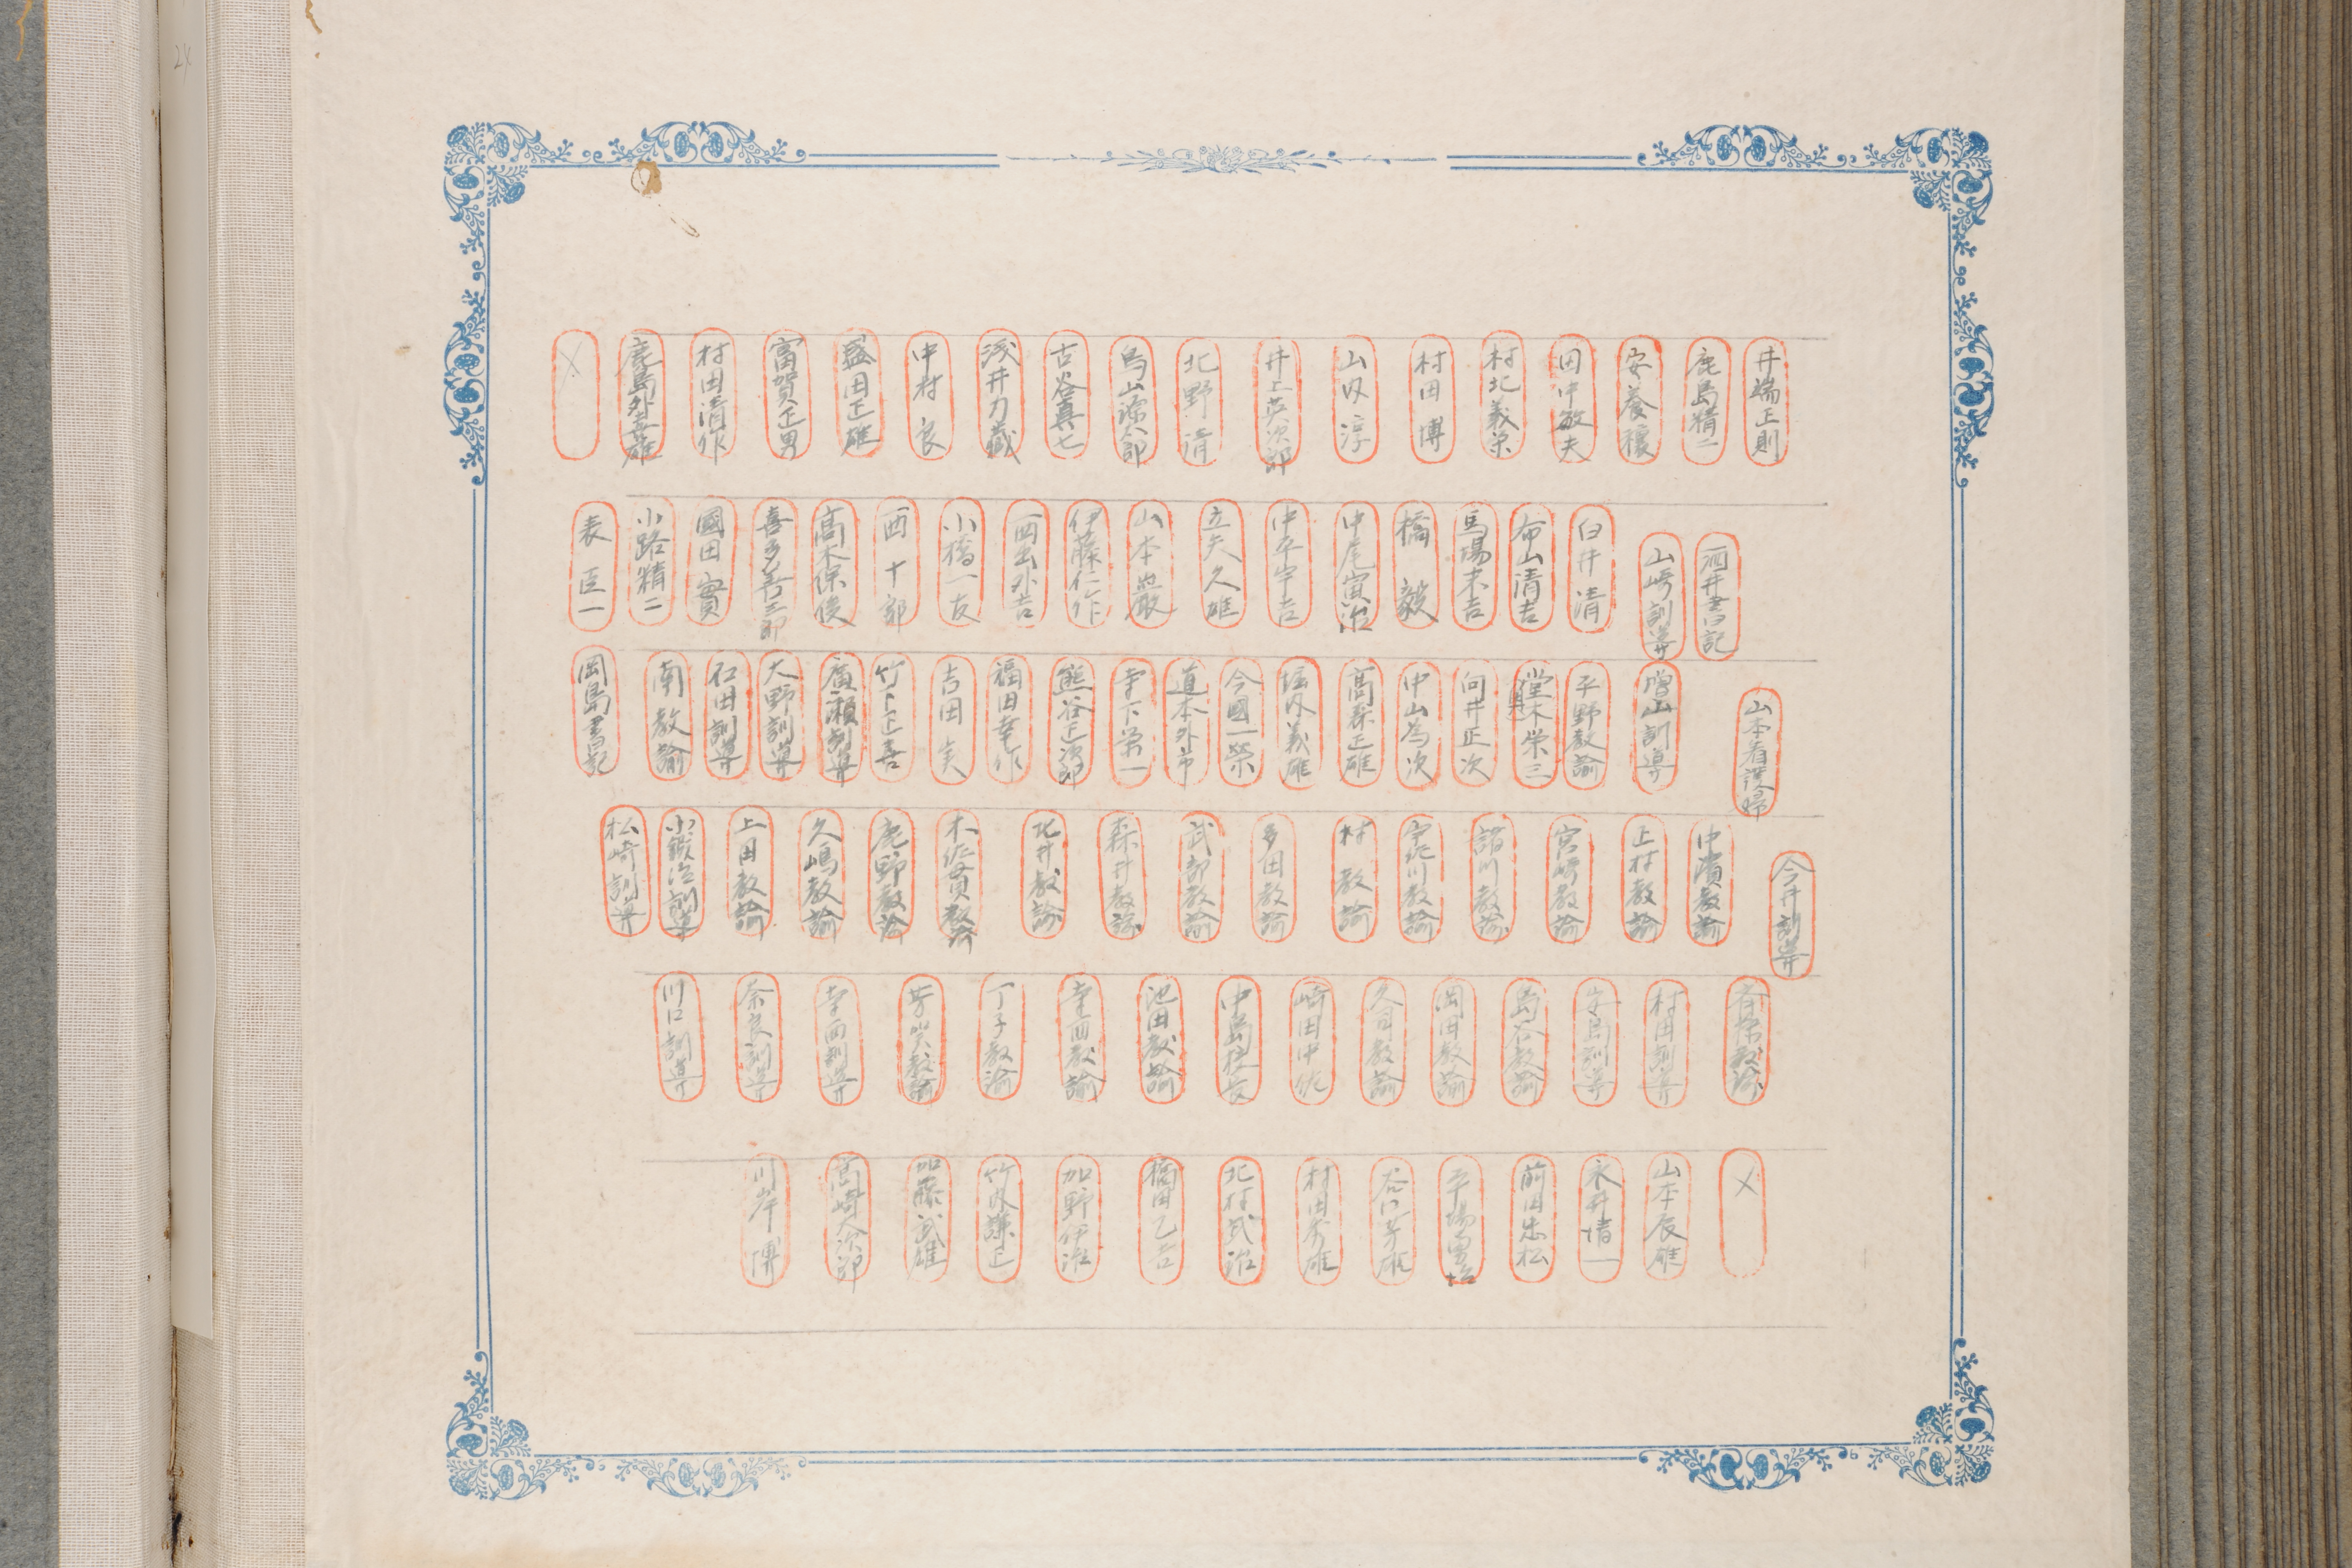 井端正則
鹿島精二
安養穣
田中敏夫
村北義栄
村田博
山内淳
井上英次郎
北野清
鳥山源八郎
古谷真七
浅井力蔵
中村良
盛田正雄
富賀正男
村田清作
鹿島外喜雄
×
酒井書記
山崎訓導
臼井清
布山清吉
馬場末吉
橋毅
中尾寅治
中平宇吉
立矢久雄
山本巌
伊藤仁作
西出外吉
小橋一友
西十郎
高木保俊
喜多善三郎
國田實
小路精二
表臣一
山本看護婦
増山訓導
平野教諭
堂木栄三
向井正次
中山為次
高森正雄
堀内義雄
今國一榮
道本外弟
寺下栄一
熊谷正次郎
福田幸作
吉田実
竹下正喜
廣瀬訓導
大野訓導
石田訓導
南教諭
岡島書記
今井訓導
中濱教諭
上村教諭
宮崎教諭
諸川教諭
宇佐川教諭
村教諭
多田教諭
武部教諭
森井教諭
北井教諭
木佐貫教諭
鹿野教諭
久嶋教諭
上田教諭
小鍛治訓導
松崎訓導
斉藤教諭
村田訓導
安島訓導
島谷教諭
岡田教諭
久司教諭
崎田中佐
中島校長
池田教諭
寺西教諭
丁子教諭
芳炭教諭
寺西訓導
奈良訓導
川口訓導
×
山本辰雄
永井清一
前田忠松
平場男治
谷口芳雄
村田秀雄
北村武治
橘田乙吉
加野伊佐
竹内謙正
加藤武雄
高崎久次郎
川岸博
24